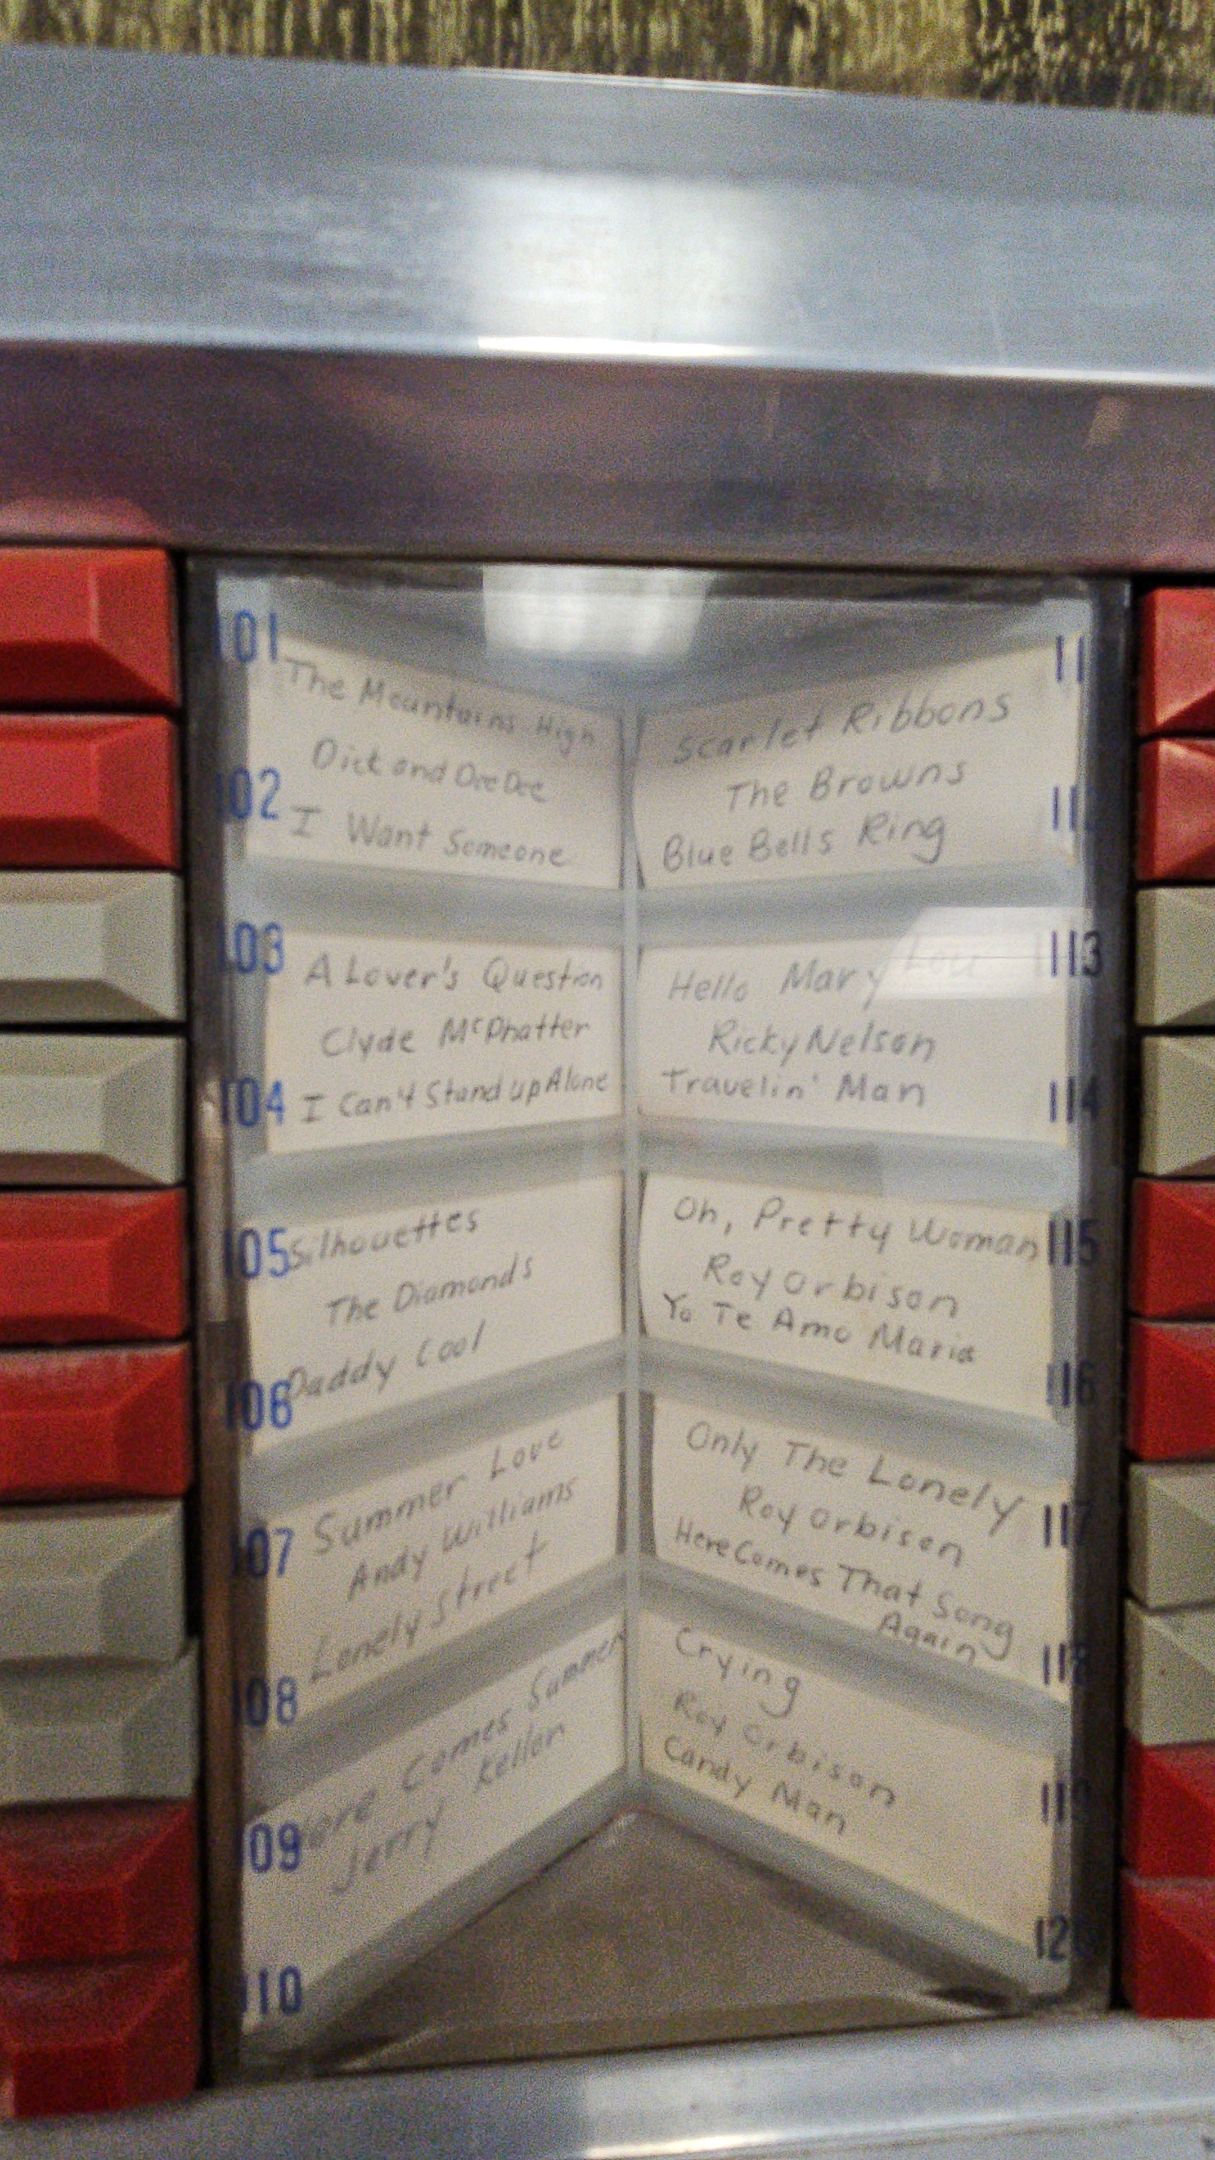 101
The Mountains High
Dick and Dee Dee
102
I Want Someone
103
A Lover's Question
Clyde McPhatter
104
I Can't Stand up Alone
105
Silhouettes
The Diamonds
106
Daddy Cool
107
Summer Love
Andy Williams
108
Lonely Street
109
Here Comes Summer
Jerry Keller
110
11
Scarlet Ribbons
The Browns
11
Blue Bells Ring
113
Hello Mary Lou
Ricky Nelson
114
Travelin' Man
115
Oh, Pretty Woman
Roy Orbison
116
Yo Te Amo Maria
117
Only The Lonely
Roy Orbison
118
Here Comes That Song
Again
Crying
Roy Orbison
119
Candy Man
12